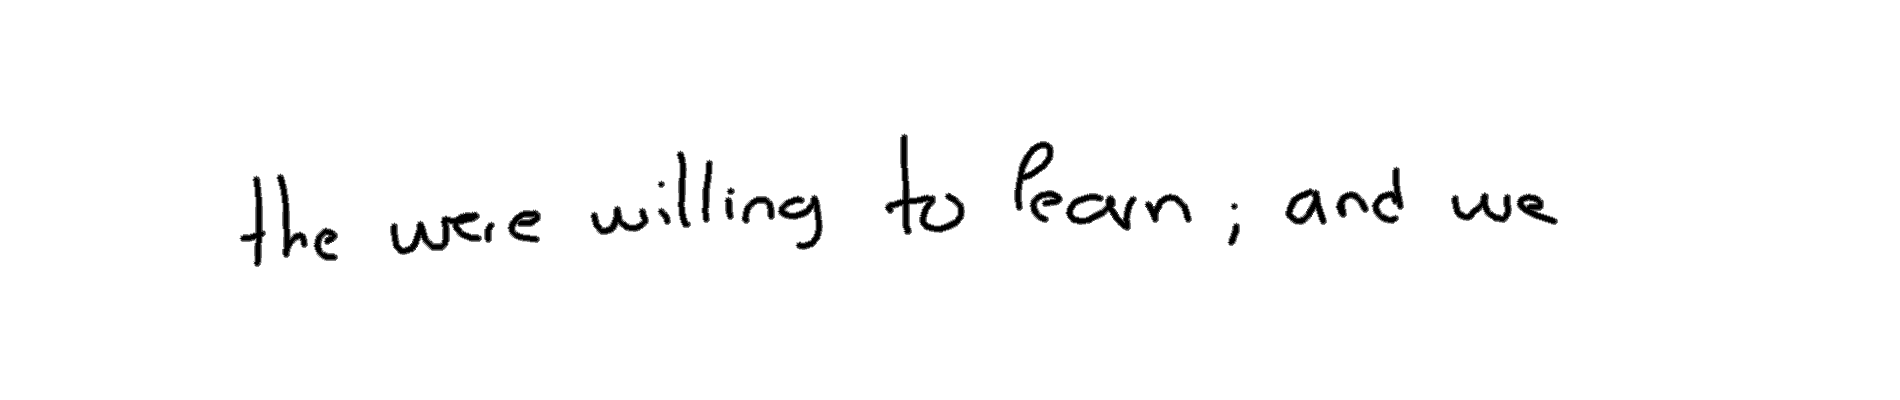 the were willing to learn; and we